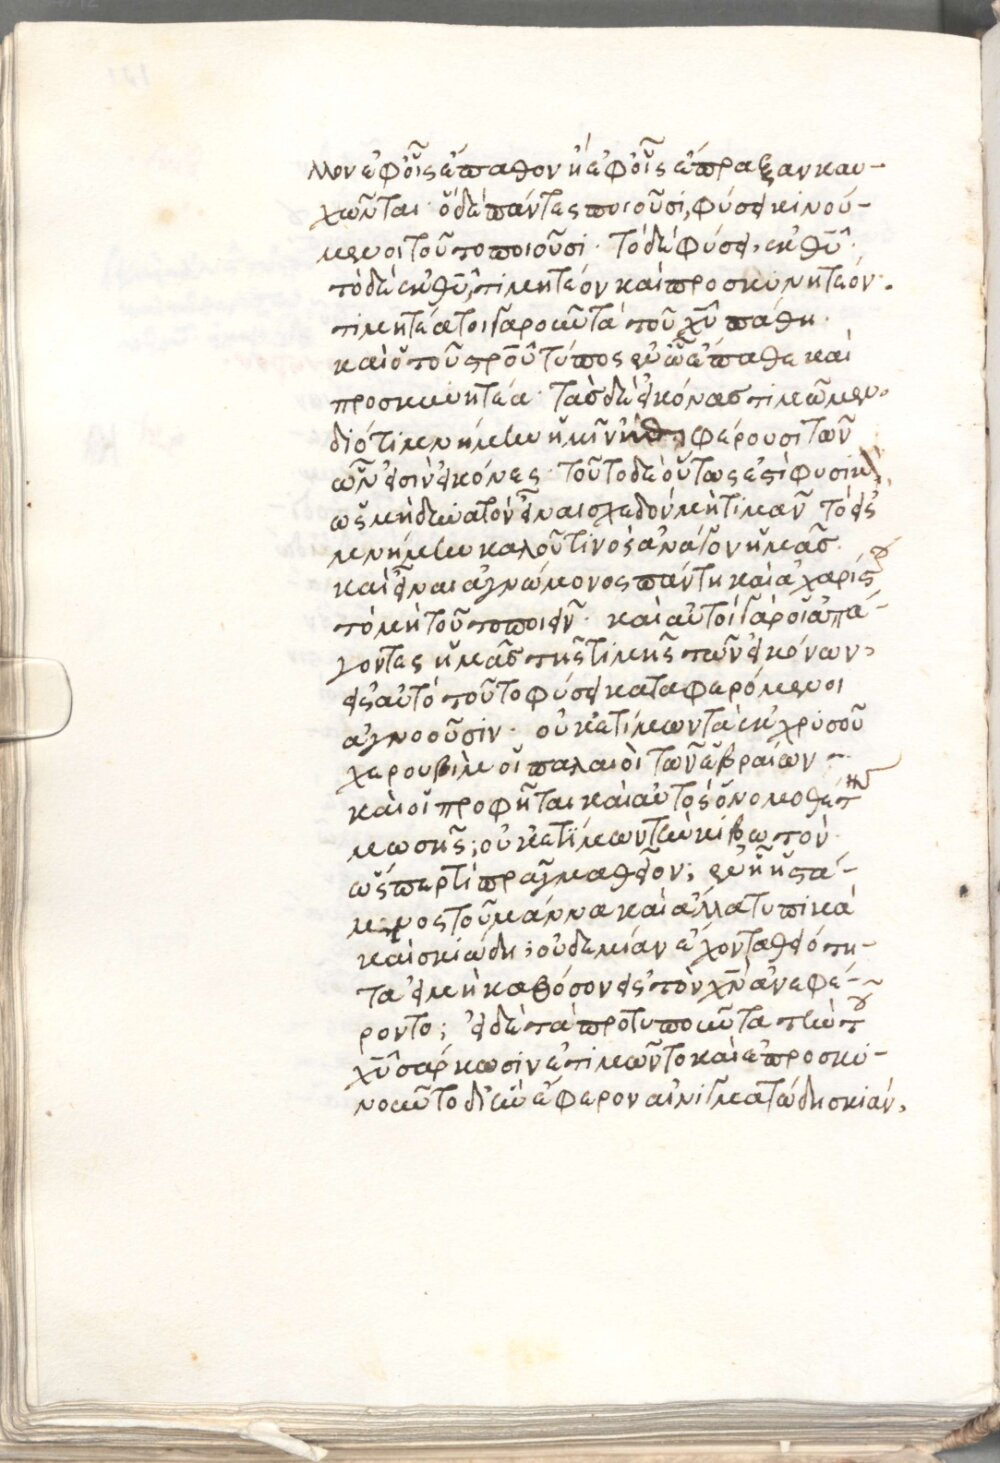 μον ἐφ οἷς ἔπαθον ἢ ἐφ οἷς ἔπραξαν καυ-
χῶνται· ὃ δὲ πάντες ποιοῦσι, φύσει κινού-
μενοι τοῦτο ποιοῦσι· τὸ δὲ φύσει, ἐκ θῦ·
τὸ δὲ ἐκ θῦ, τιμητέον καὶ προσκυνητέον.
τιμητέα τοιγαροῦν τὰ τοῦ χῦ πάθη.
καὶ ὁ τοῦ σρ̅οῦ τύπος ἐν ὧ ἔπαθε καὶ
προσκυνητέα· τὰς δὲ εἰκόνας τιμῶμεν.
διότι μνήμην ἡμῖν φέρουσι τῶν
ὧν εἰσὶν εἰκόνες· τοῦτο δὲ οὕτως ἐστὶ φυσικὸν,
ὡς μὴ δυνατὸν εἶναι σχεδὸν μὴ τιμᾶν τὸ εἰς
μνήμην καλοῦ τινὸς ἀνάγον ἡμᾶς.
καὶ εἶναι ἀγνώμονος πάντη καὶ ἀχαρίστου
τὸ μὴ τοῦτο ποιεῖν· καὶ αὐτοὶ γὰρ οἱ ἀπά-
γοντες ἡμᾶς τῆς τιμῆς τῶν εἰκόνων,
εἰς αὐτὸ τοῦτο φύσει καταφερόμενοι
ἀγνοοῦσιν· οὐκ ἐτίμων τὰ ἐκ χρυσοῦ
χερουβὶμ οἱ παλαιοὶ τῶν ἑβραίων
καὶ οἱ προφῆται καὶ αὐτὸς ὁ νομοθέτης
μωσῆς; οὐκ ἐτίμων τὴν κιβωτὸν
ὥσπερ τὶ πρᾶγμα θεῖον; ἐν ἧ ἡ στά-
μνος τοῦ μάννα καὶ ἄλλα τυπικὰ
καὶ σκιώδη; οὐδεμίαν ἔχοντα θειότη-
τα εἰ μὴ καθόσον εἰς τὸν χν̅ ἀνεφέ-
ροντο; εἰ δὲ τὰ προτυποῦντα τὴν τοῦ
χῦ σάρκωσιν ἐτιμῶντο καὶ ἐπροσκυ-
νοῦντο δι' ἣν ἔφερον αἰνιγματώδη σκιάν,